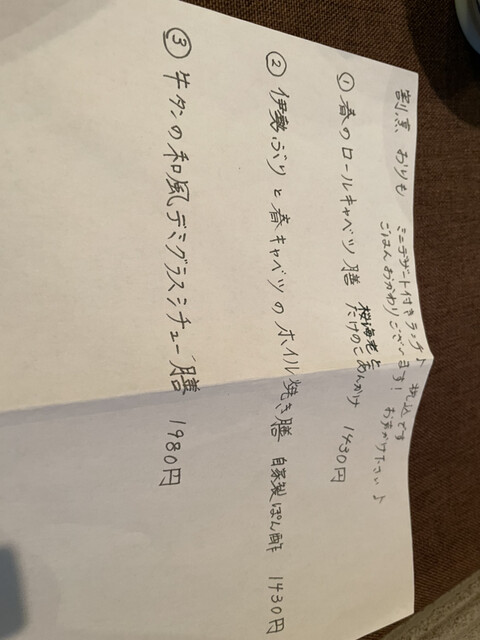 割烹 おりも
ミニデザート付きランチ♪ 税込です
ごはんおかわりございます! お声がけ下さい♪
① 春のロールキャベツ膳 桜海老と
たけのこあんかけ 1430円
② 伊勢ぶりと春キャベツのホイル焼き膳 自家製ぽん酢 1430円
③ 牛タンの和風デミグラスシチュー膳 1980円